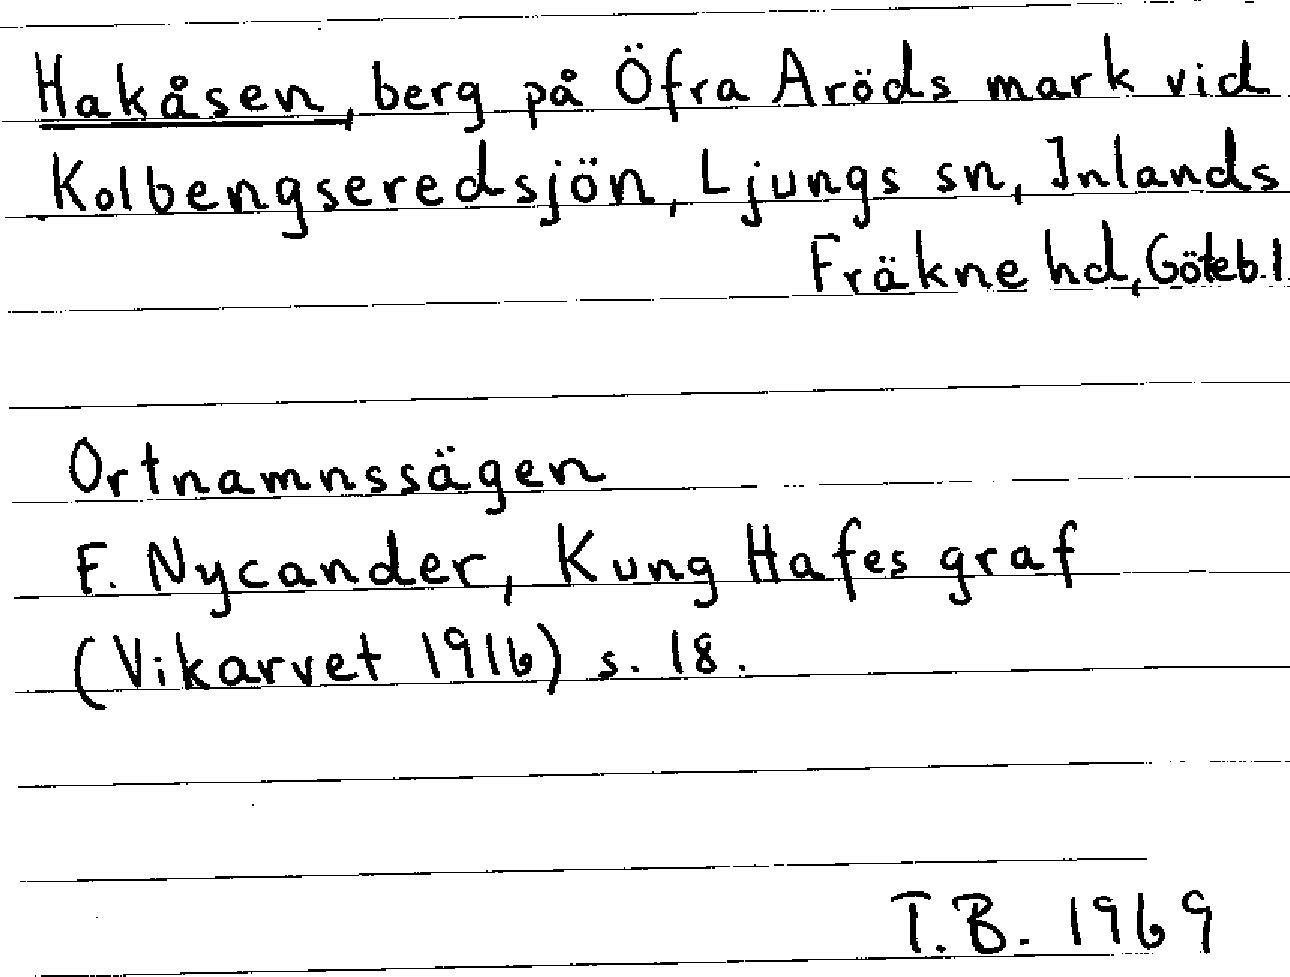 Hakåsen, berg på Öfra Aröds mark vid
Kolbengseredsjön, Ljungs sn, Inlands
Fräkne hd, Göteb. l
Ortnamnssägen
F. Nycander, Kung Hafes graf
(Vikarvet 1916) s. 18.
T.B. 1969